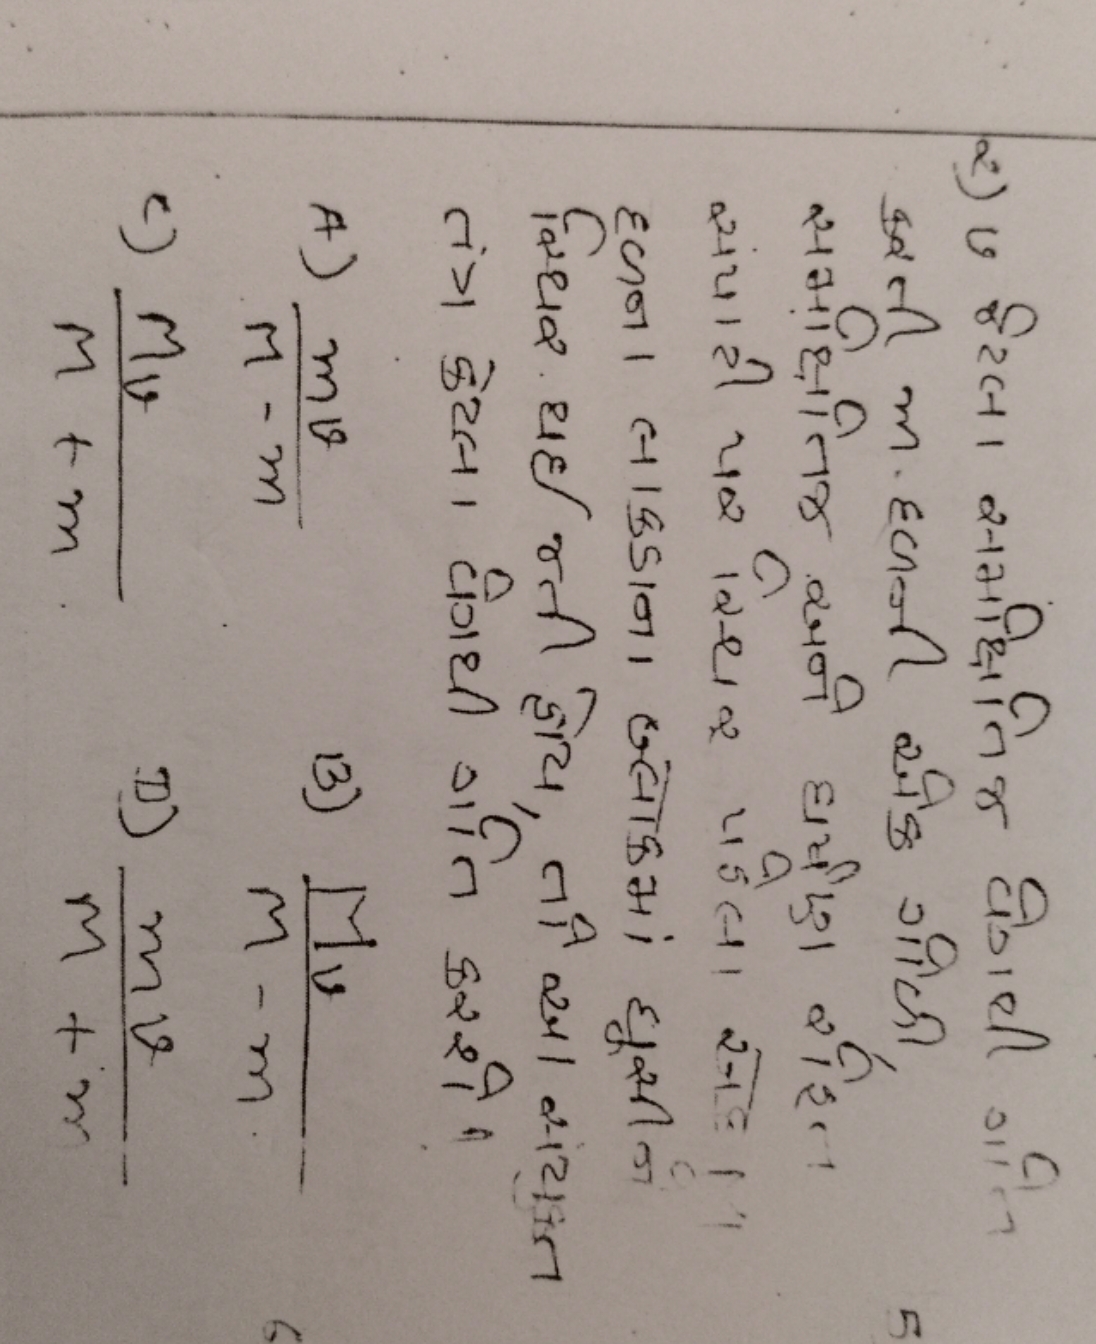 ૨) v જેટલા સમક્ષિતિજ વેગથી ગતિ
કરતી m દળની એક ગોળી,
સમક્ષિતિજ અને ઘર્ષણ રહિત
સપાટી પર સ્થિર પડેલા M
દળના લાકડાના બ્લોકમાં ઘુસીને
સ્થિર થઈ જતી હોય, તો આ સંયુક્ત
તંત્ર કેટલા વેગથી ગતિ કરશે ?
A) mv / M - m B) Mv / M - m
C) Mv / M + m D) mv / M + m
5
6